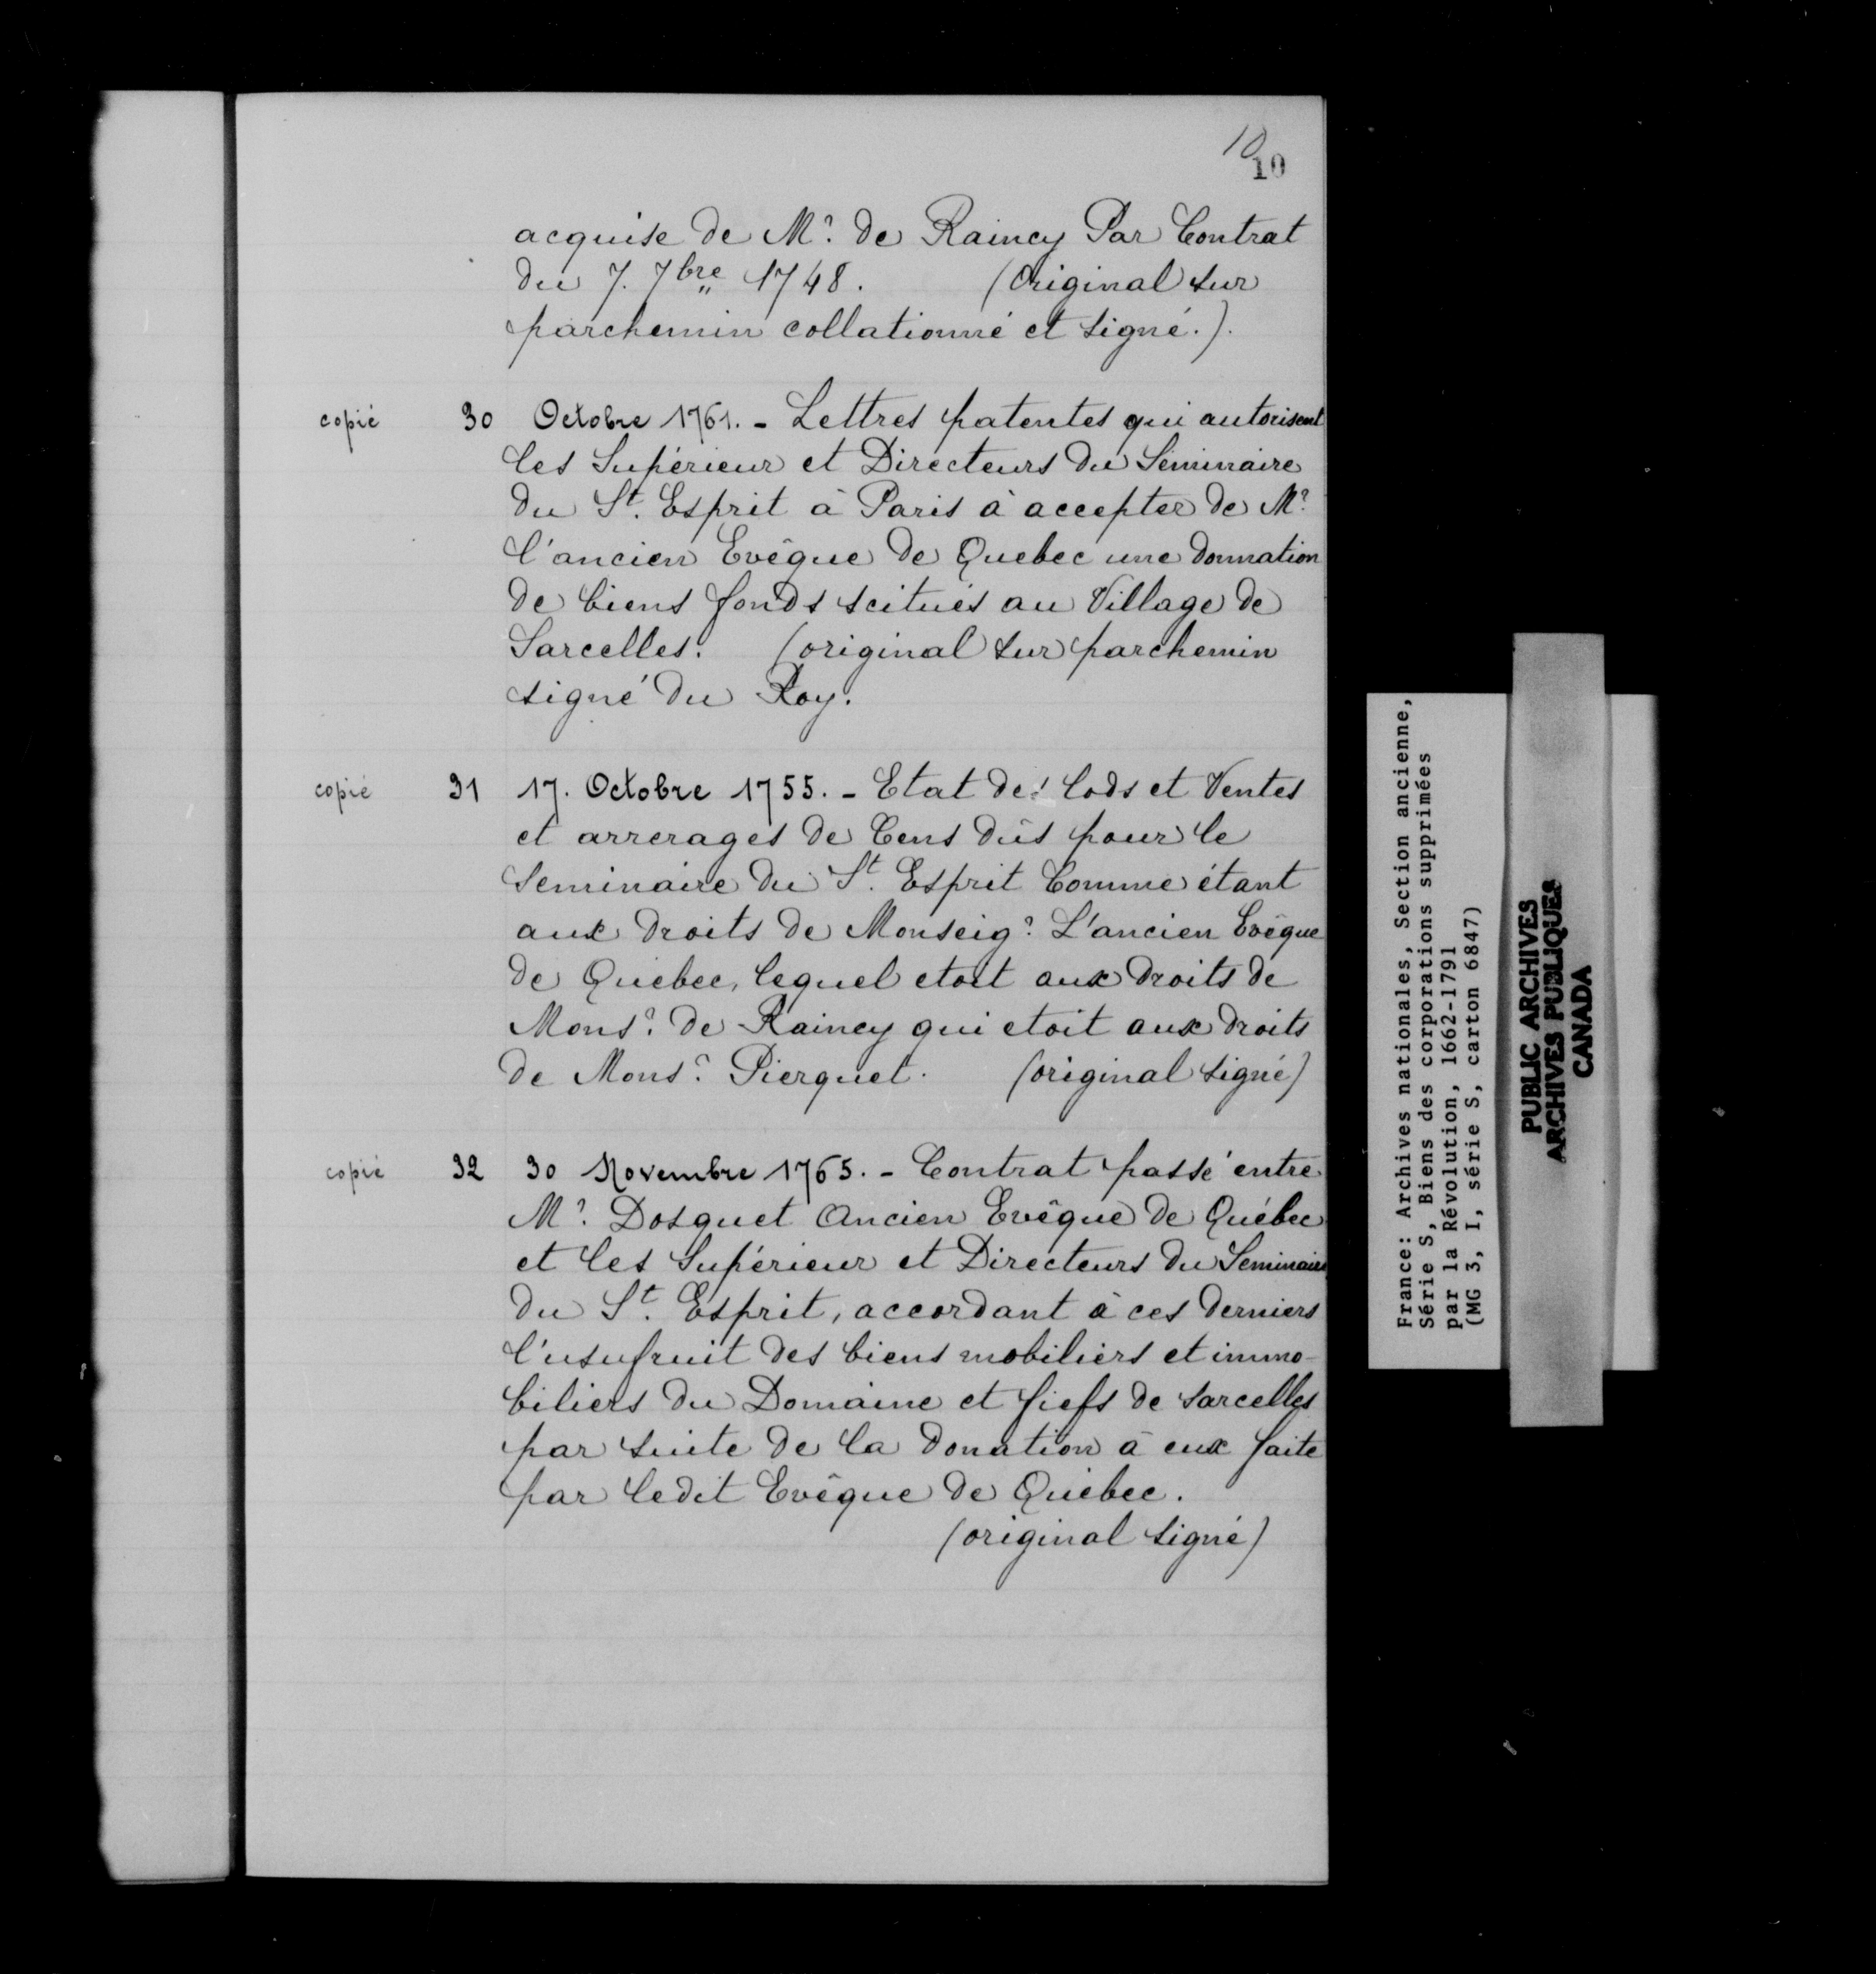 10
10
acquise de Mr. de Raincy Par Contrat
du 7. 7bre 1748. (Original sur
parchemin collationné et signé.).
copié 30 Octobre 1761. - Lettres patentes qui autorisent
les Supérieur et Directeurs du Séminaire
du St. Esprit à Paris à accepter de Mr.
l'ancien Evêque de Quebec une donnation
de biens fonds scitués au Village de
Sarcelles. (original sur parchemin
signé du Roy.
copié 31 17. Octobre 1755. - Etat des lods et Ventes
et arrerages de Cens dûs pour le
Seminaire du St. Esprit Comme étant
aux droits de Monseigr. L'ancien Evêque
de Quebec, lequel etoit aux droits de
Monsr. de Raincy qui etoit aux droits
de Monsr. Pierquet. (original signé)
copié 32 30 Novembre 1765. - Contrat passé entre
Mr. Dosquet Ancien Evêque de Québec
et les Supérieur et Directeurs du Seminaire
du St. Esprit, accordant à ces derniers
l'usufruit des biens mobiliers et immo-
biliers du Domaine et fiefs de Sarcelles
par suite de la donation à eux faite
par ledit Evêque de Québec.
(original signé)
France: Archives nationales, Section ancienne,
Série S, Biens des corporations supprimées
par la Révolution, 1662-1791
(MG 3, I, série S, carton 6847)
PUBLIC ARCHIVES
ARCHIVES PUBLIQUES
CANADA